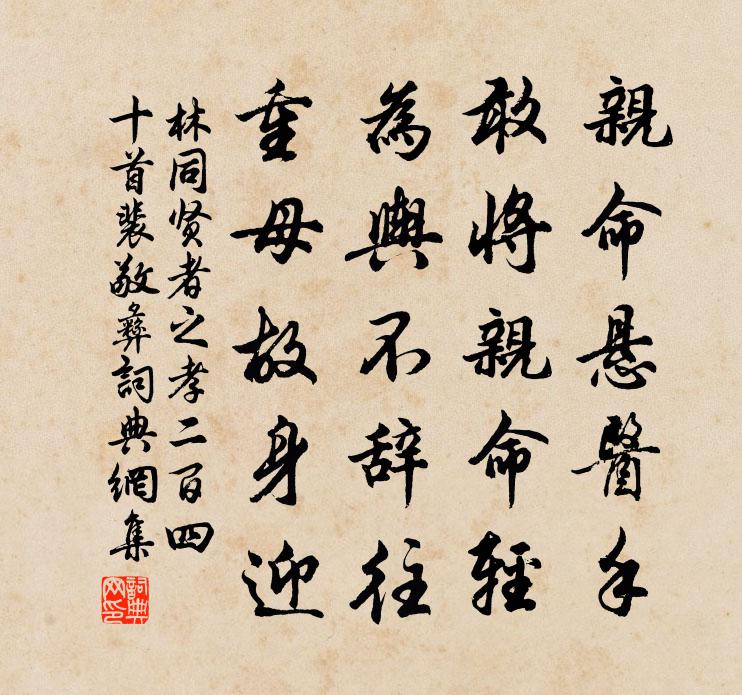 親命悬醫手
敢将親命輕
為輿不辞往
重母故身迎
林同贤者之孝二百四
十首裴敬彝詞典網集
詞典網印